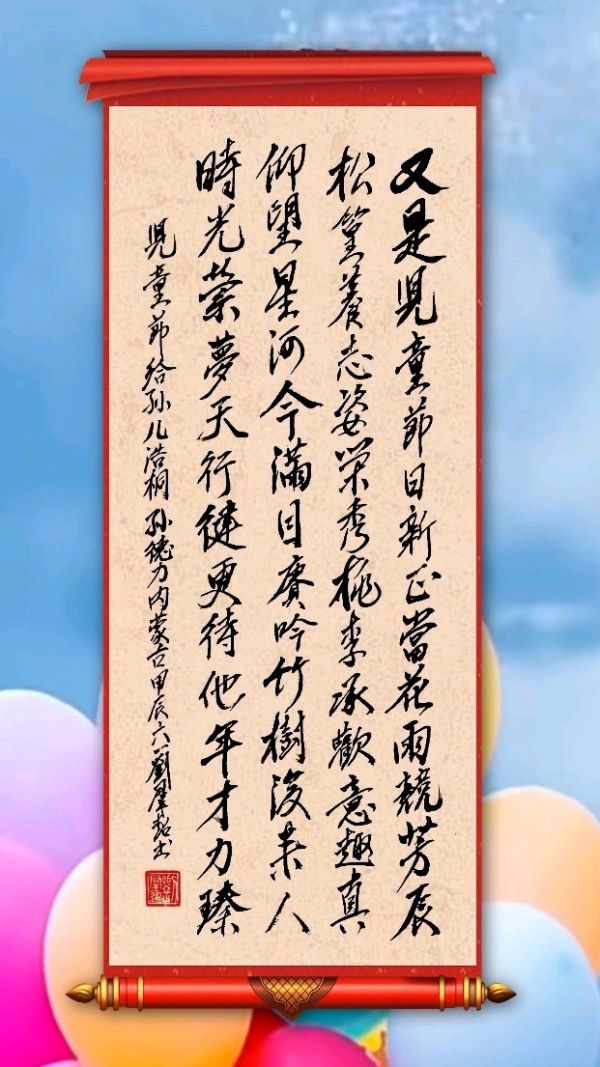 又是児童節日新正當花雨競芳辰
松篁養志姿榮秀桃李承歡意趣真
仰望星河今滿目賡吟竹樹後来人
時光縈夢天行健更待他年才力臻
児童節给孙儿浩桐孙德力内蒙古甲辰六一劉
书